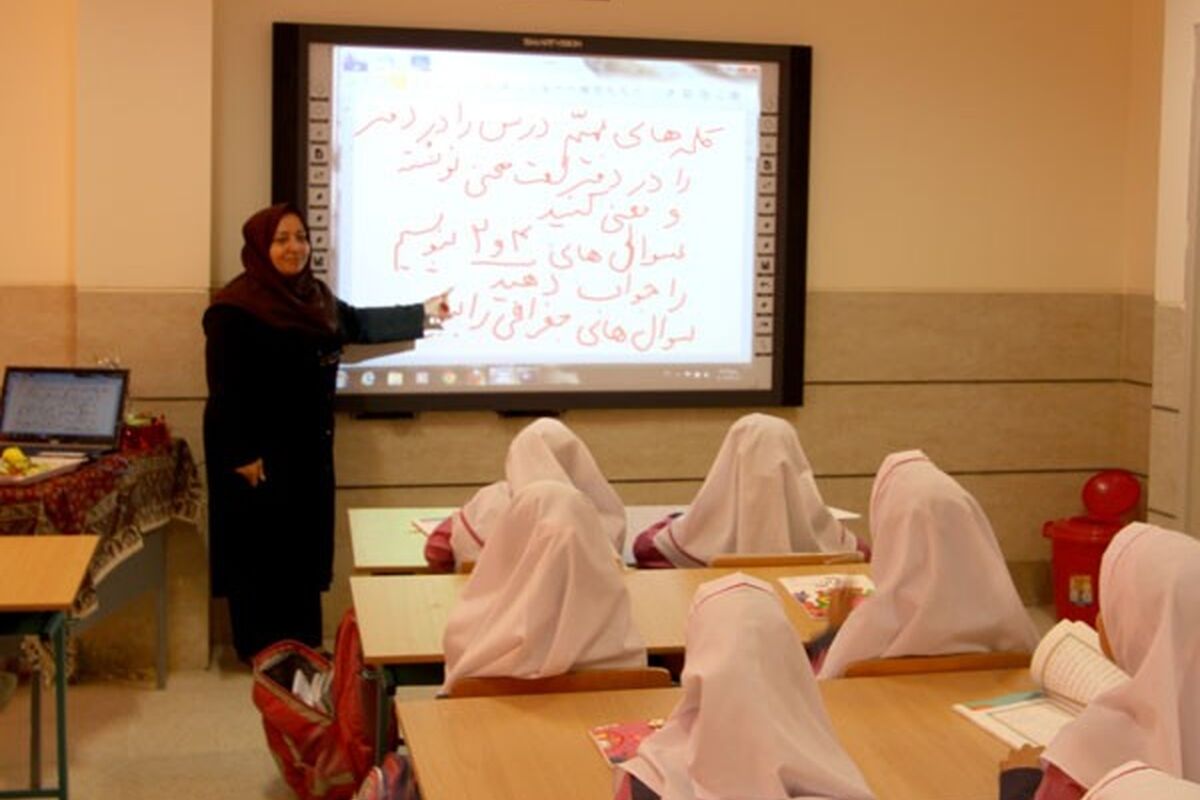 کلمه های مهم درس را در دفتر
را در دفتر لغت معنی نوشته
و معنی کنید
سوال های ۲ و ۳ بنویسیم
را جواب دهید
سوال های جغرافی را